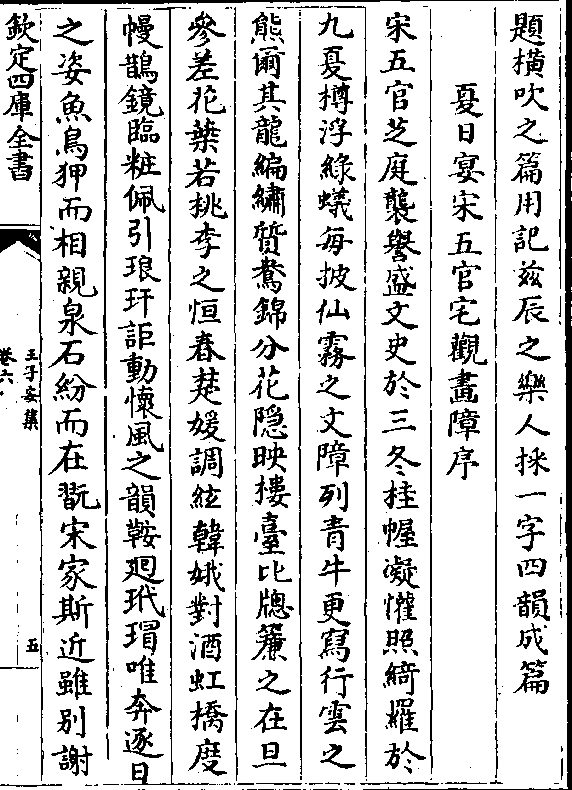 題橫吹之篇用記兹辰之樂人採一字四韻成篇
夏日宴宋五官宅觀畫障序
宋五官芝庭襲譽盛文史於三冬桂幄凝懽照綺羅於
九夏樽浮綠蟻每披仙霧之文障列青牛更寫行雲之
熊爾其龍編繡質鴦錦分花隠映㯹臺比牕簾之在旦
參差花蘂若桃李之恒春楚媛調絃韓娥對酒虹橋度
幔鵲鏡臨粧佩引琅玕詎動懷風之韻鞍迴玳瑁唯奔逐日
之姿魚鳥狎而相親泉石紛而在翫宋家斯近雖别謝
欽定四庫全書
王子安集
卷六
五